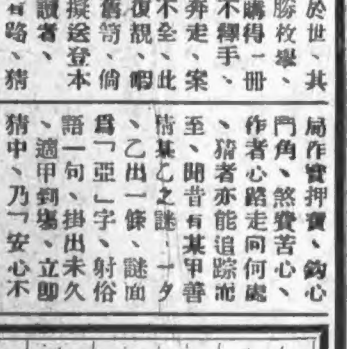 於世、其
勝枚擧、
購得一冊
不釋手、
奔走、案
不全、此
復覩、暇
舊笥、倘
擬送登本
讀者、
路、猜
局作實押寶、鈎心
鬥角、煞費苦心、
作者心路走向何處
、猜者亦能追踪而
至、聞昔有某甲善
猜某乙之謎、一夕
、乙出一條、謎面
爲「亞」字、射俗
語一句、掛出未久
、適甲到塲、立即
猜中、乃「安心不